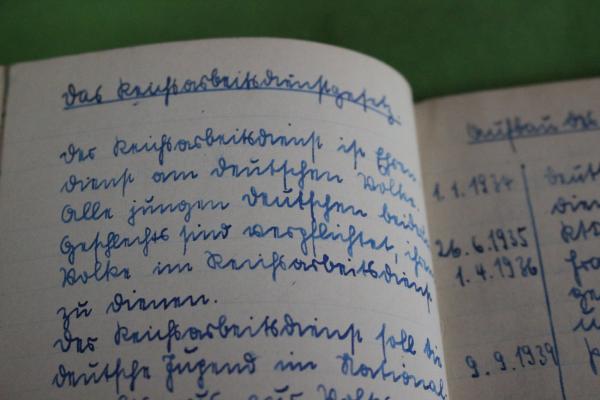 Das Reichsarbeitsdienstgesetz
Der Reichsarbeitsdienst ist Ehren
dienst am deutschen Volke.
Alle jungen Deutschen beider
Geschlechts sind verpflichtet, ihrem
Volke im Reichsarbeitsdienst
zu dienen.
Der Reichsarbeitsdienst soll die
deutsche Jugend im National-
Aufbau des
1.1.1934
26.6.1935
1.4.1936
9.9.1939